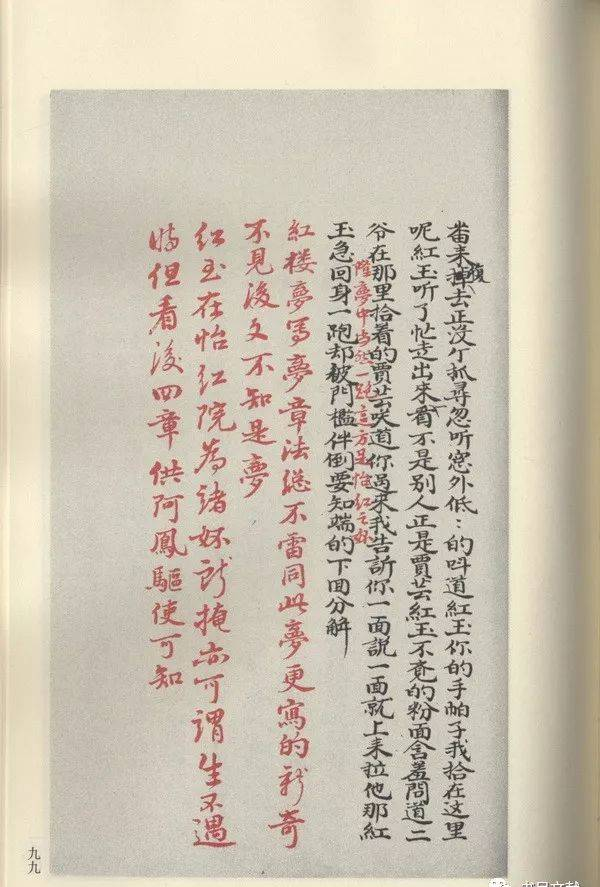 畨来覆去正没个抓尋忽听窓外低:的呌道紅玉你的手帕子我拾在这里
呢紅玉听了忙走出來看不是别人正是賈芸紅玉不覺的粉面含羞問道二
爷在那里拾着的賈芸笑道你過来我告訴你一面説一面就上来拉他那紅
睡夢中当然一跑這方是怡紅之婢
玉急回身一跑却被門檻伴倒要知端的下面分解
紅楼夢寫夢章法總不雷同此夢更寫的新奇
不見後文不知是夢
紅玉在怡紅院為諸妳所掩亦可謂生不遇
時但看後四章供阿鳳驅使可知
九九